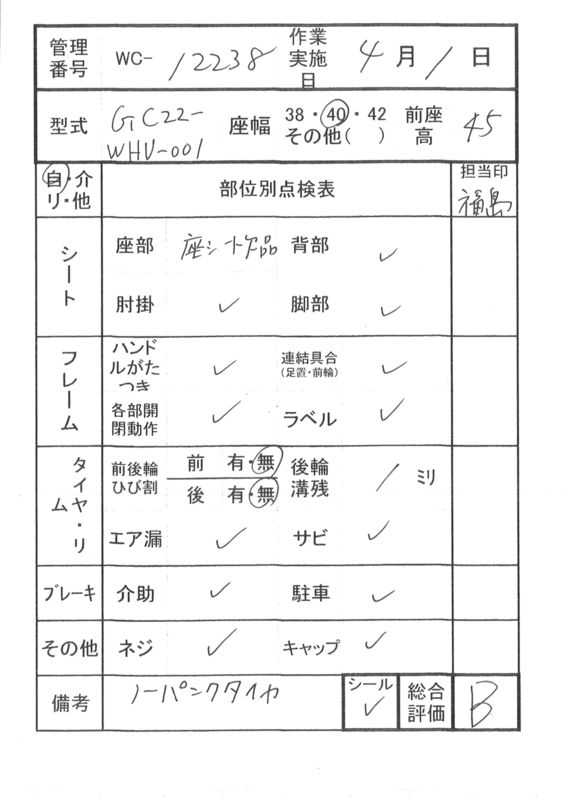 管理番号 WC-12238 作業実施日 4月1日
型式 GC22-WHU-001 座幅 38・40・42 その他( ) 前座高 45
自・介 リ・他 部位別点検表 担当印 福島
シート 座部 座シート欠品 背部 ✓
肘掛 ✓ 脚部 ✓
フレーム ハンドルがたつき ✓ 連結具合(足置・前輪) ✓
各部開閉動作 ✓ ラベル ✓
タイヤ・リム 前後輪ひび割 前 有・無 後輪溝残 / ミリ
後 有・無
エア漏 ✓ サビ ✓
ブレーキ 介助 ✓ 駐車 ✓
その他 ネジ ✓ キャップ ✓
備考 ノーパンクタイヤ シール ✓ 総合評価 B